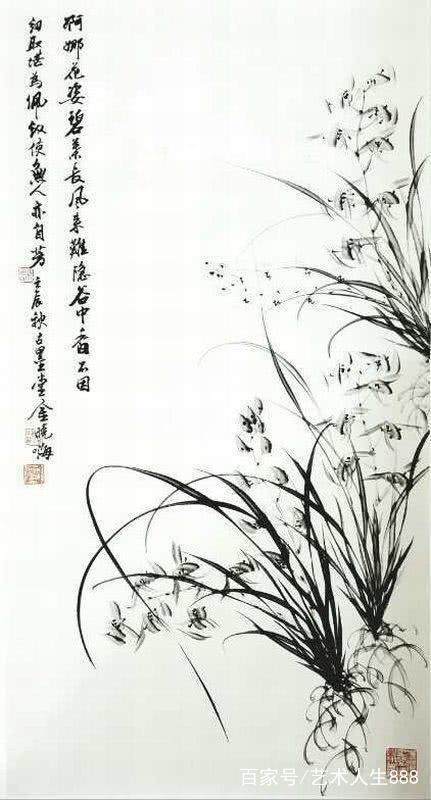 婀娜花姿碧葉長風来難隐谷中香不因
纫取堪為佩纵使無人亦自芳壬辰秋古墨堂金曉海
百家号/艺术人生888